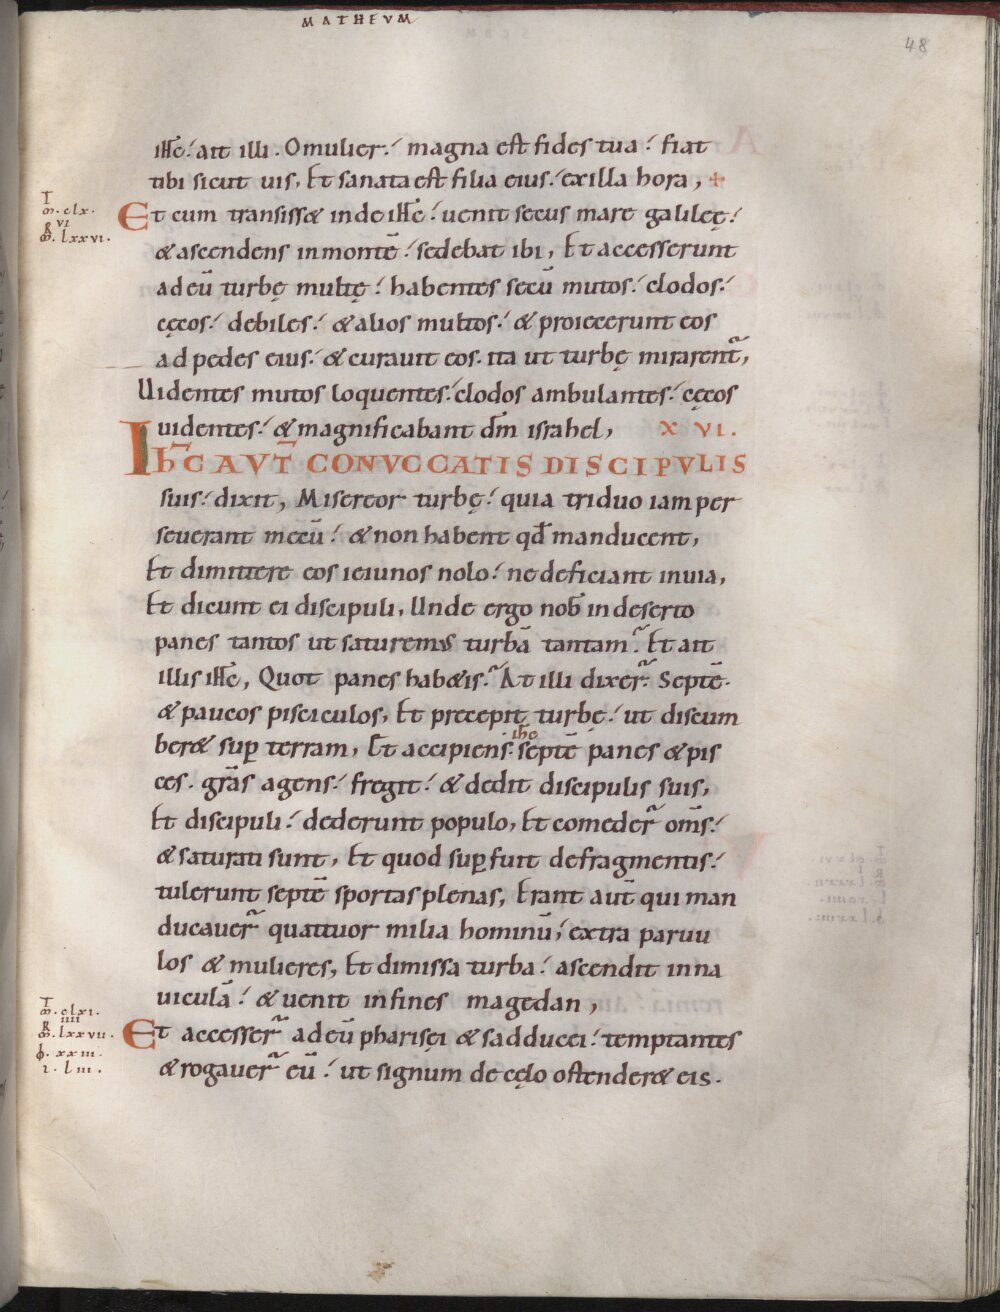 MATHEVM
48
ihc̄. ait illi. O mulier. magna est fides tua. fiat
tibi sicut uis, Et sanata est filia eius. ex illa hora,
T
m̄. clx.
VI
R
m̄. lxxvi.
Et cum transisset inde ihc̄. uenit secus mare galileę.
& ascendens in montē. sedebat ibi, Et accesserunt
ad eū turbę multę. habentes secū mutos. clodos.
cęcos. debiles. & alios multos. & proiecerunt eos
ad pedes eius. & curauit eos. ita ut turbę mirarent᷑,
Uidentes mutos loquentes. clodos ambulantes. cęcos
uidentes. & magnificabant dm̄ israhel, XVI.
IhC̄ AVT̄ CONVOCATIS DISCIPVLIS
suis. dixit, Misereor turbę. quia triduo iam per
seuerant mecū. & non habent qd̄ manducent,
Et dimittere eos ieiunos nolo. ne deficiant in uia,
Et dicunt ei discipuli, Unde ergo nob̄ in deserto
panes tantos ut saturemus turbā tantam. Et ait
illis ihc̄, Quot panes habetis. At illi dixer̄. Septē.
& paucos pisciculos, Et precepit turbę. ut discum
beret sup̱ terram, Et accipiens ihc septē panes & pis
ces. grās agens. fregit. & dedit discipulis suis,
Et discipuli. dederunt populo, Et comeder̄ om̄s.
& saturati sunt, Et quod sup̱fuit de fragmentis.
tulerunt septē sportas plenas, Erant aut̄ qui man
ducauer̄ quattuor milia hominū, extra paruu
los & mulieres, Et dimissa turba. ascendit in na
uiculā. & uenit in fines magedan,
T
m̄. clxi.
IIII
R
m̄. lxxvii.
ϕ. xxiii.
l. liii.
Et accesser̄ ad eū pharisęi & sadducei. temptantes
& rogauer̄ eū. ut signum de cęlo ostenderet eis.